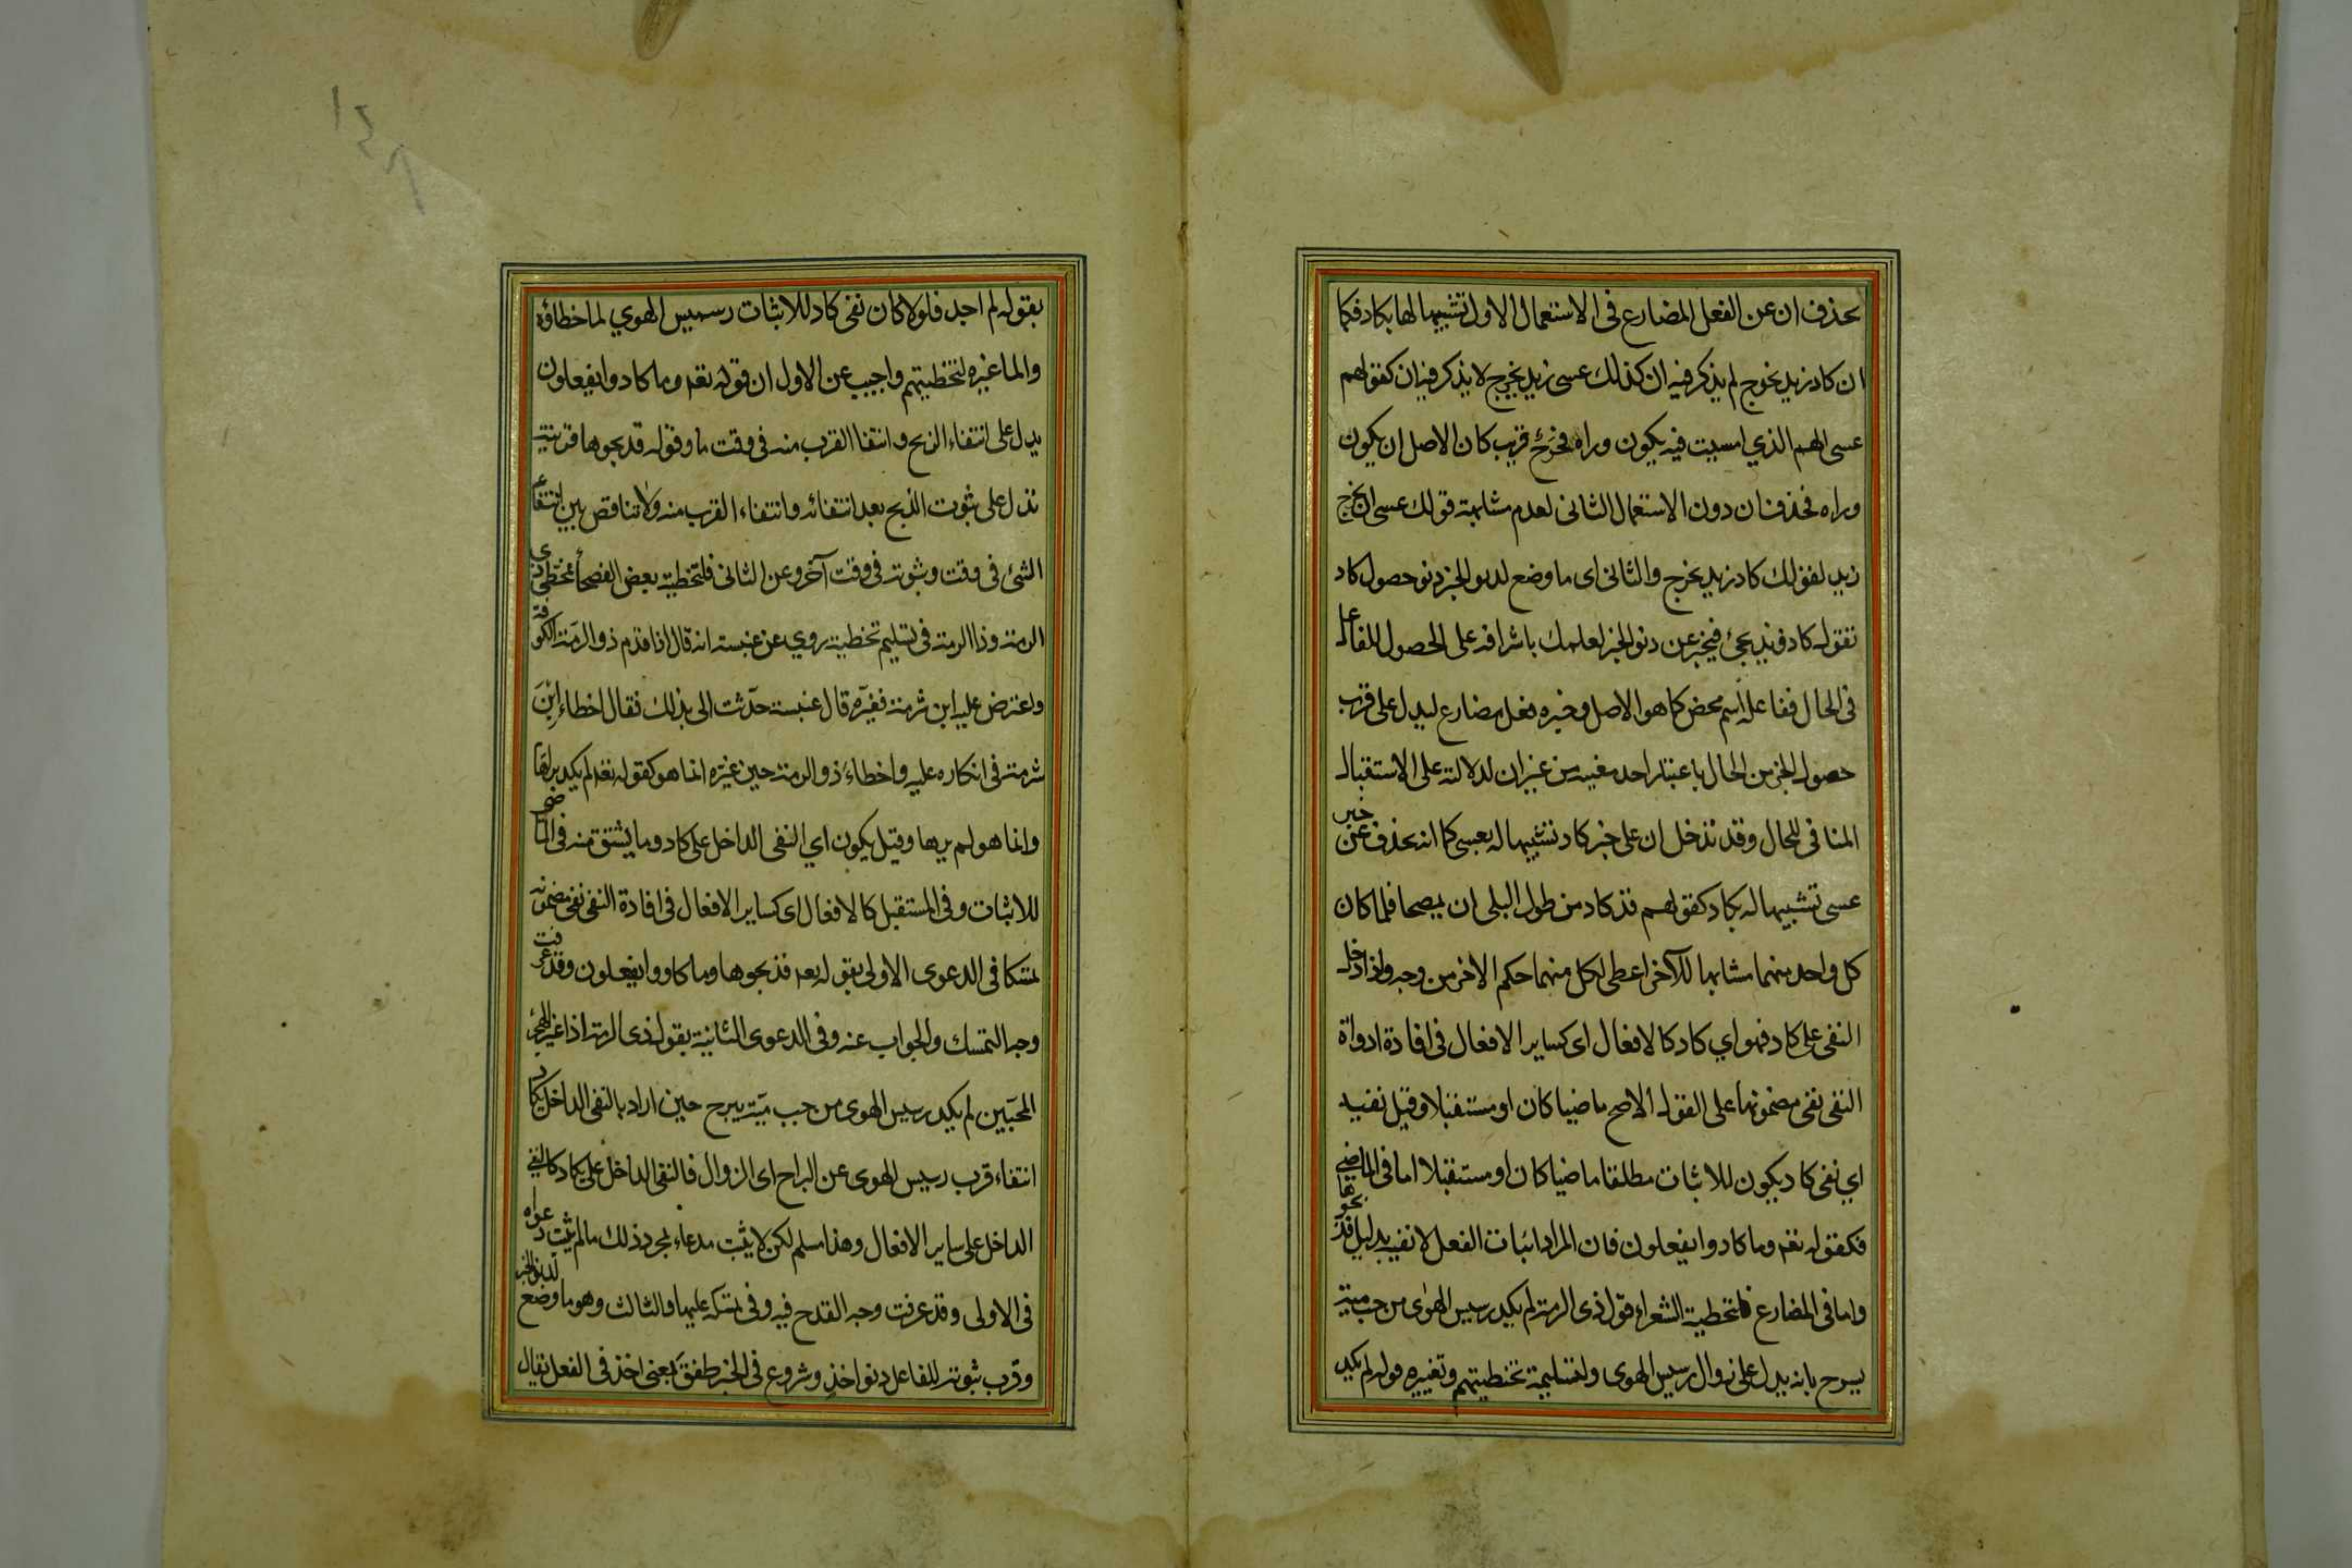 يحذف ان عن الفعل المضارع فى الاستعمال الاول تشبيها لها بكاد فكما
ان كاد زيد يخرج لم يذكر فيه ان كذلك عسى زيد يخرج لا يذكر فيه ان كقولهم
عسى الهم الذي امسيت فيه يكون وراه فرج قريب كان الاصل ان يكون
وراه فحذف ان دون الاستعمال الثانى لعدم مشابهة قولك عسى ان يخرج
زيد لقولك كاد زيد يخرج والثانى اى ما وضع لدنو الخبر دنو حصول كاد
تقول كاد زيد يجئ فيخبر عن دنو الخبر لعلمك باشرافه على الحصول للفاعل
فى الحال ففاعله اسم محض كما هو الاصل وخبره فعل مضارع ليدل على قرب
حصول الخبر من الحال باعتبار احد معنييه من غير ان لدلالته على الاستقبال
المنافى للحال وقد تدخل ان على خبر كاد تشبيها له بعسى كما انه يحذف عن خبر
عسى تشبيها له بكاد كقولهم قد كاد من طول البلى ان يمصحا فلما كان
كل واحد منهما مشابها للآخر اعطى لكل منهما حكم الاخر من وجه واذا دخل
النفى على كاد فهو اي كاد كالافعال اى كساير الافعال فى افادة ادواة
النفى نفى مضمونها على القول الاصح ماضيا كان او مستقبلا وقيل نفيه
اي نفى كاد يكون للاثبات مطلقا ماضيا كان او مستقبلا اما فى الماضى
فكقوله تعه وما كادوا يفعلون فان المراد اثبات الفعل لا نفيه بدليل فذبحوها
واما فى المضارع فلتخطية الشعراء قول ذى الرمة لم يكد رسيس الهوى من حب مية
يبرح بانه يدل على زوال رسيس الهوى ولتسليمه تخطيتهم وتغييره قوله لم يكد
بقوله لم اجد فلولا كان نفى كاد للاثبات رسيس الهوي لما خطاؤه
ولما غيره لتخطيتهم واجيب عن الاول ان قوله تعه وما كادوا يفعلون
يدل على انتفاء الذبح وانتفا القرب منه فى وقت ما وقوله فذبحوها قرينة
تدل على ثبوت الذبح بعد انتفائه وانتفاء القرب منه ولا تناقض بين انتفاء
الشئ فى وقت وثبوته فى وقت آخر وعن الثانى فلتخطية بعض الفصحأ مخطئ ذى
الرمة وذا الرمة فى تسليم تخطيته روي عن عنبسة انه قال اذا قدم ذو الرمة الكوفة
واعترض عليه ابن شرمة فغيره قال عنبسة حدثت ابى بذلك فقال اخطاء ابن
شرمة فى انكاره عليه واخطاء ذو الرمة حين غيره انما هو كقوله تعه لم يكد يراها
وانما هو لم يرها وقيل يكون اي النفى الداخل على كاد وما يشتق منه فى الماضى
للاثبات وفى المستقبل كالافعال اى كساير الافعال فى افادة النفى نفى مضمونه
تمسكا فى الدعوى الاولى بقوله تعه فذبحوها وما كادوا يفعلون وقد عرفت
وجه التمسك والجواب عنه وفى الدعوى الثانية بقول ذى الرمة اذا غير الهجر
المحبين لم يكد رسيس الهوى من حب مية يبرح حين اراد بالنفى الداخل يكاد
انتفاء قرب رسيس الهوى عن البراح اى الزوال فالنفى الداخل على يكاد كالنفى
الداخل على ساير الافعال وهذا مسلم لكن لا يثبت مدعاء بمجرد ذلك ما لم يثبت دعواه
فى الاولى وقد عرفت وجه القدح فيه وفى تمسكه عليها والثالث وهو ما وضع لدنو الخبر
وقرب ثبوته للفاعل دنو اخذ وشروع فى الخبر طفق بمعنى اخذ فى الفعل يقال